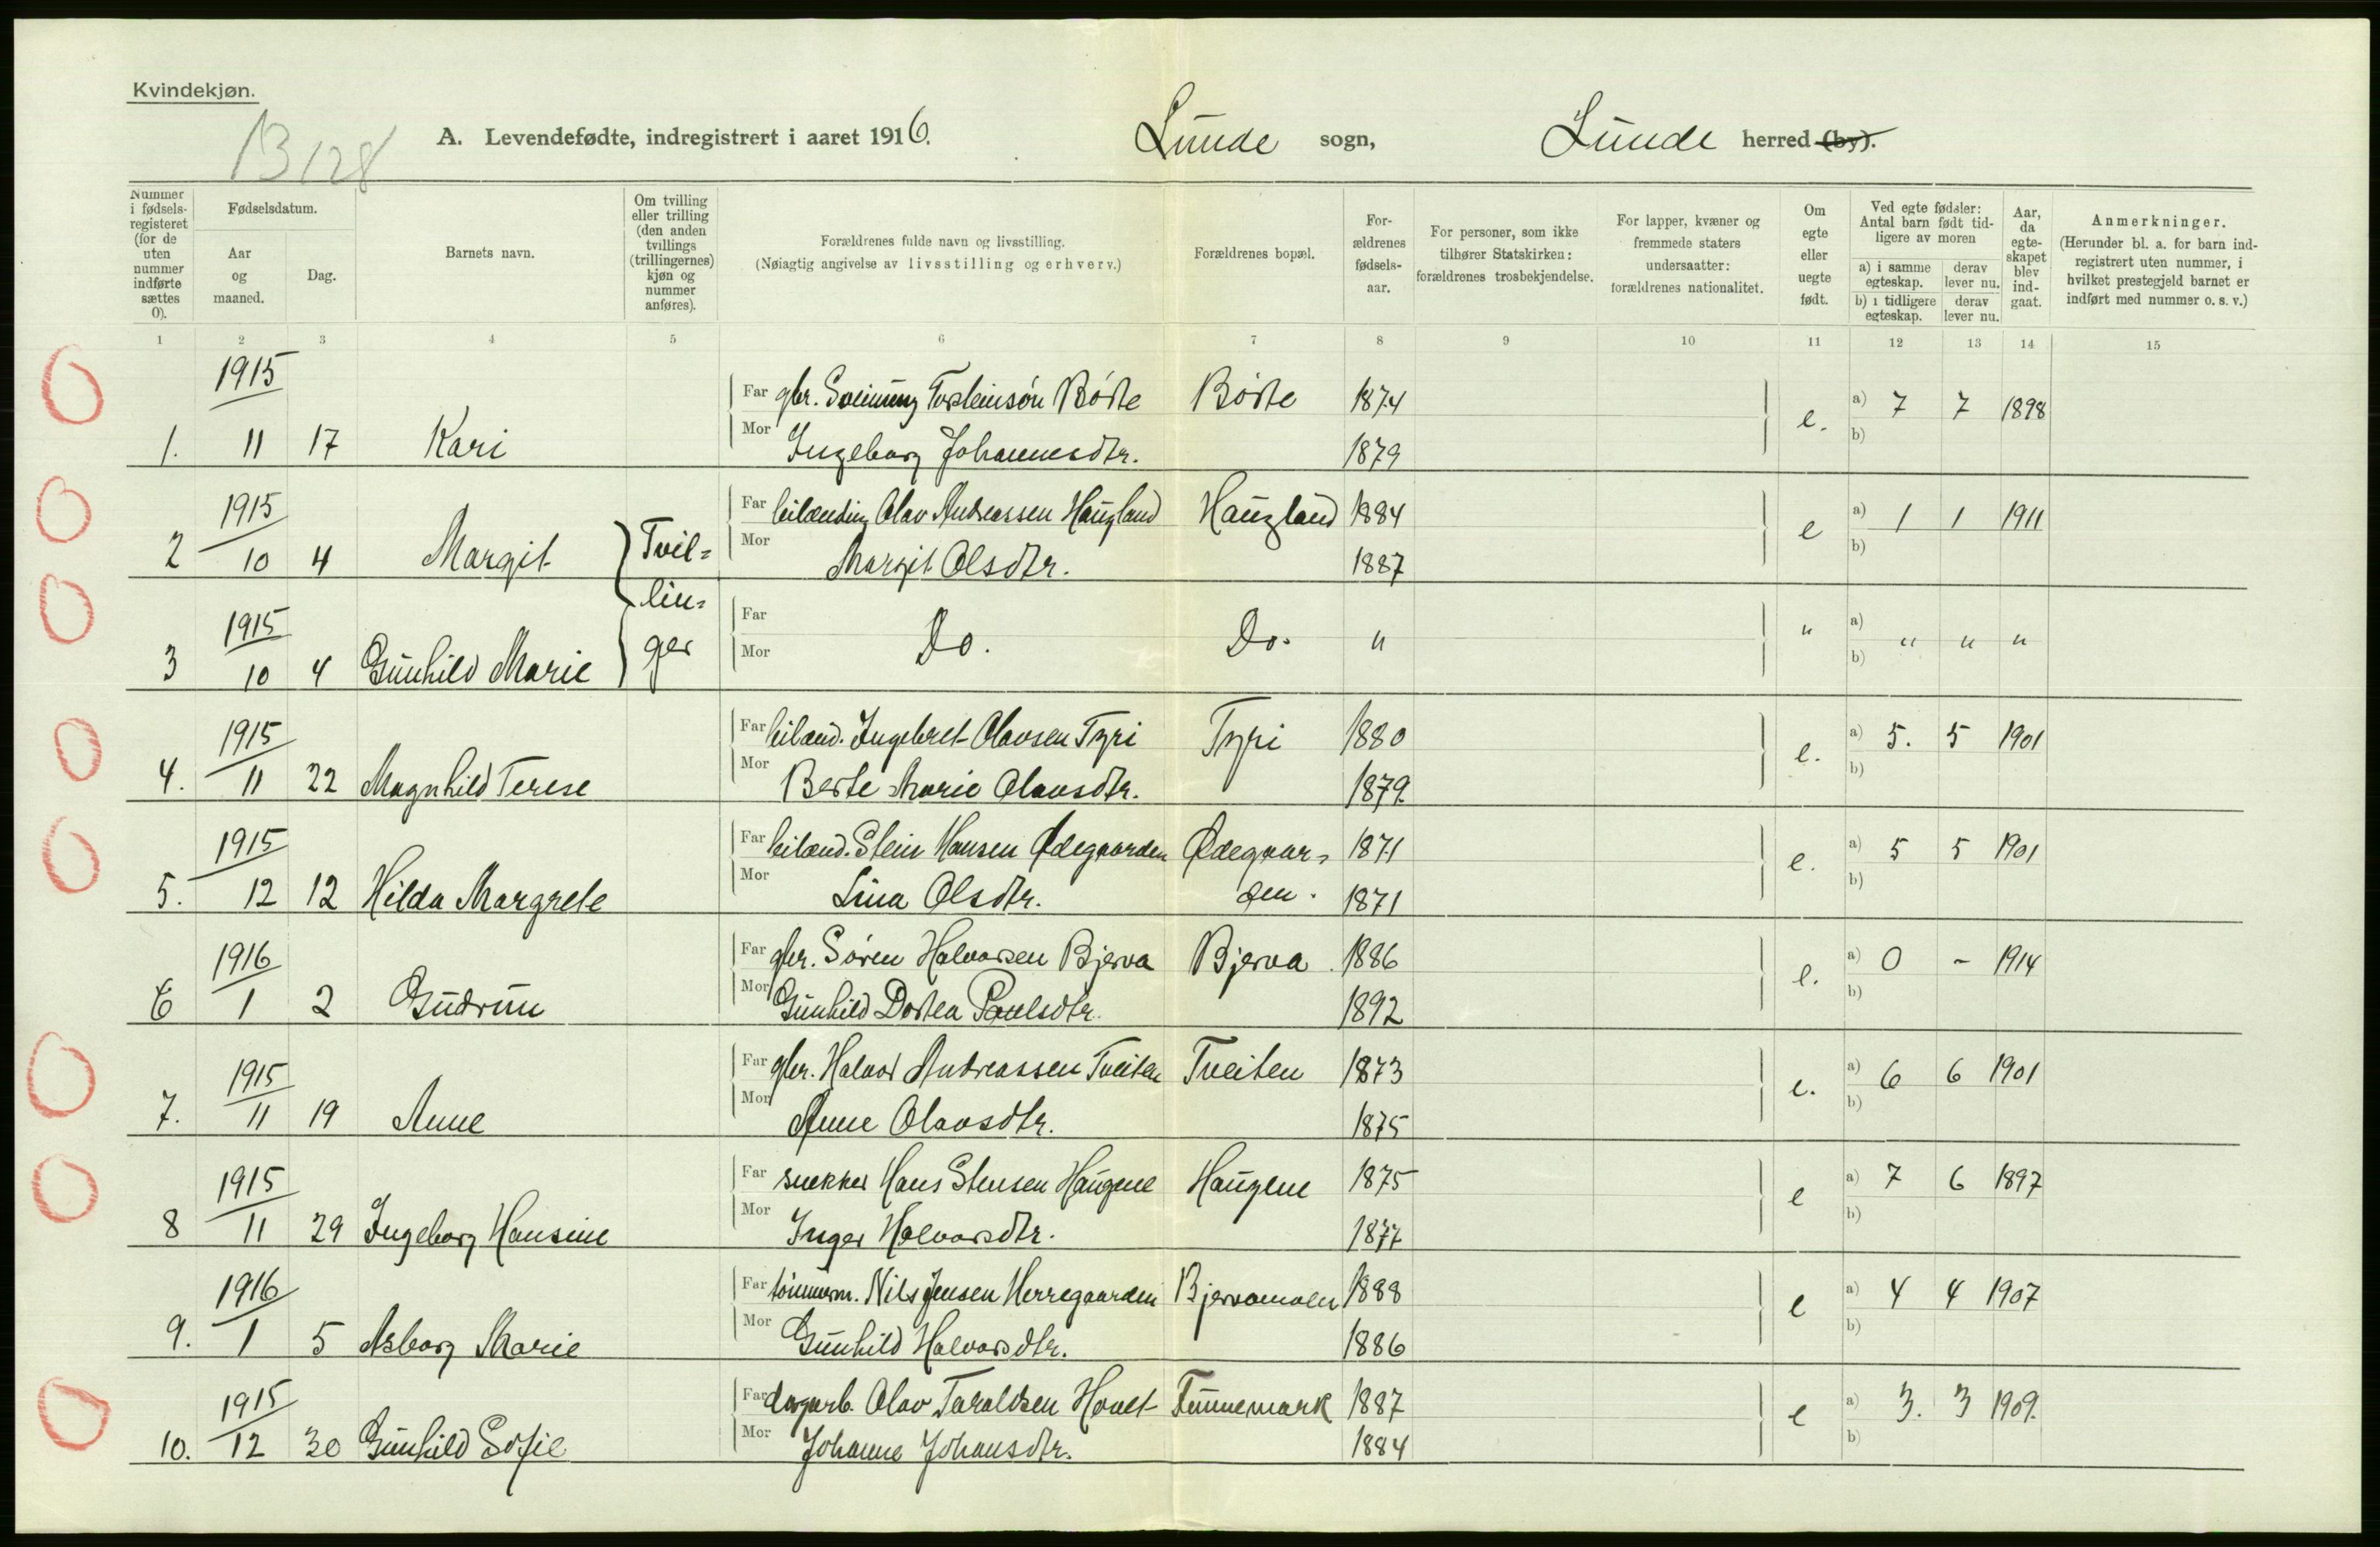 Kvindekjøn.
B 128
A. Levendefødte, indregistrert i aaret 1916. Lunde sogn, Lunde herred (by).
Nummer i fødsels-registeret (for de uten nummer indførte sættes 0).
Fødselsdatum.
Aar og maaned.
Dag.
Barnets navn.
Om tvilling eller trilling (den anden tvillings (trillingernes) kjøn og nummer anføres).
Forældrenes fulde navn og livsstilling.
(Nøiagtig angivelse av livsstilling og erhverv.)
Forældrenes bopæl.
For-ældrenes fødsels-aar.
For personer, som ikke tilhører Statskirken: forældrenes trosbekjendelse.
For lapper, kvæner og fremmede staters undersaatter: forældrenes nationalitet.
Om egte eller uegte født.
Ved egte fødsler: Antal barn født tid-ligere av moren
a) i samme egteskap. derav lever nu.
b) i tidligere egteskap. derav lever nu.
Aar, da egte-skapet blev ind-gaat.
Anmerkninger.
(Herunder bl. a. for barn ind-registrert uten nummer, i hvilket prestegjeld barnet er indført med nummer o. s. v.)
1 2 3 4 5 6 7 8 9 10 11 12 13 14 15
1915 Far gbr. Sveinung Torsteinsøn Børte Børte 1874 e. a) 7 7 1898
1. 11 17 Kari Mor Ingeborg Johannesdtr. 1879 b)
1915 Far leilænding Olav Andreassen Haugland Haugland 1884 e a) 1 1 1911
2 10 4 Margit Tvil= Mor Margit Olsdtr. 1887 b)
lin=
1915 Far Do. Do. " " a) " " "
3 10 4 Gunhild Marie ger Mor b)
1915 Far leilænd. Ingebret Olavsen Tyri Tyri 1880 e. a) 5. 5 1901
4. 11 22 Magnhild Terese Mor Berte Marie Olavsdtr. 1879 b)
1915 Far leilænd. Stein Hansen Ødegaarden Ødegaar= 1871 e. a) 5 5 1901
5. 12 12 Hilda Margrete Mor Lina Olsdtr. den. 1871 b)
1916 Far gbr. Søren Halvorsen Bjerva Bjerva 1886 e. a) 0 - 1914
6 1 2 Gudrun Mor Gunhild Dortea Paulsdtr. 1892 b)
1915 Far gbr. Halvor Andreassen Tveiten Tveiten 1873 e. a) 6 6 1901
7. 11 19 Anne Mor Anne Olavsdtr. 1875 b)
1915 Far snekker Hans Stensen Haugene Haugene 1875 e a) 7 6 1897
8 11 29 Ingeborg Hansine Mor Inger Halvorsdtr. 1877 b)
1916 Far tømmerm. Nils Jensen Herregaarden Bjervamoen 1888 e a) 4 4 1907
9. 1 5 Asborg Marie Mor Gunhild Halvorsdtr. 1886 b)
1915 Far dagarb. Olav Taraldsen Hovet 1887 e a) 3. 3 1909.
10. 12 30 Gunhild Sofie Mor Johanne Johansdtr. 1884 b)